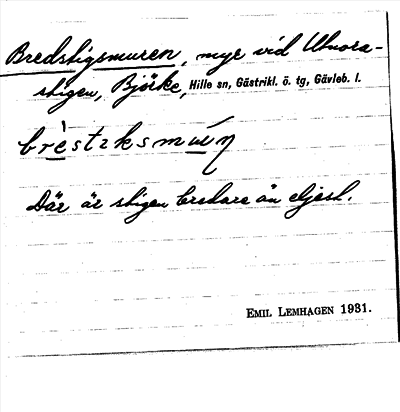 Bredstigsmuren, myr vid Utnora-
stigen, Björke, Hille sn, Gästrikl. ö. tg, Gävleb. l.
brèstɩksmúɩ̀n
Där är stigen bredare än eljest.
EMIL LEMHAGEN 1931.